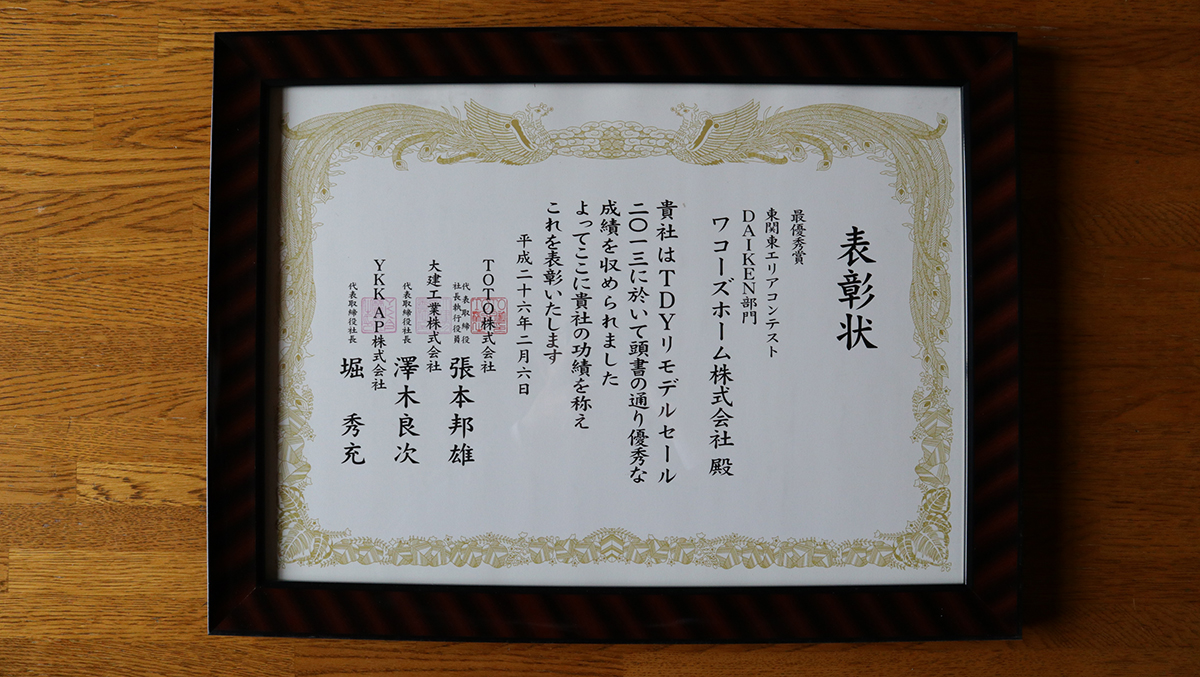 表彰状
最優秀賞
東関東エリアコンテスト
DAIKEN部門
ワコーズホーム株式会社 殿
貴社はTDYリモデルセール
二〇一三に於いて頭書の通り優秀な
成績を収められました
よってここに貴社の功績を称え
これを表彰いたします
平成二十六年二月六日
TOTO株式会社
代表取締役
社長執行役員 張本邦雄
大建工業株式会社
代表取締役社長 澤木良次
YKKAP株式会社
代表取締役社長 堀 秀充